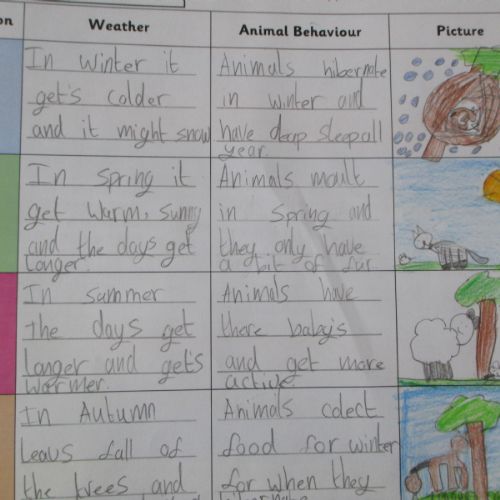 on Weather Animal Behaviour Picture
In winter it
get's colder
and it might snow
Animals hibernate
in winter and
have deap sleep all
year.
In spring it
get warm, sunny
and the days get
longer.
Animals moult
in spring and
they only have
a bit of fur
In summer
the days get
longer and get's
warmer.
Animals have
there baby's
and get more
active
In Autumn
leaus fall of
the trees and
Animals colect
food for winter
for when they